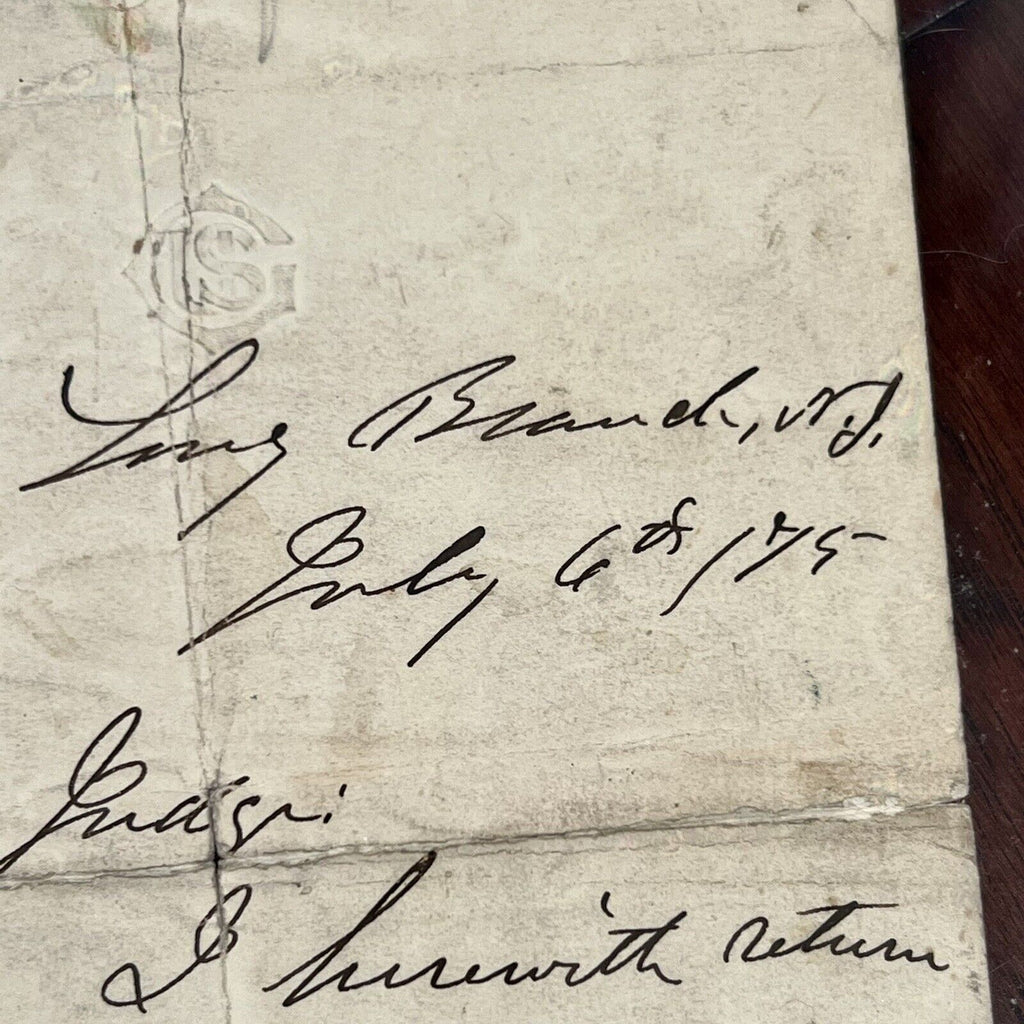 USG
Long Branch, N.J.
July 6th 1875
Judge:
I herewith return